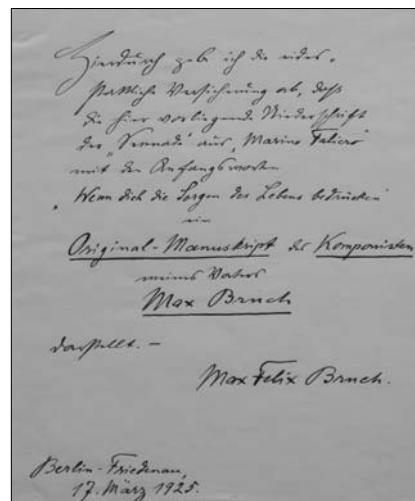 Hierdurch gebe ich die eides-
stattliche Versicherung ab, daß
die hier vorliegende Niederschrift
der „Serenade“ aus „Marino Faliero“
mit den Anfangsworten
„Wenn dich die Sorgen des Lebens bedrücken“
ein
Original-Manuskript des Komponisten
meines Vaters
Max Bruch
darstellt. —
Max Felix Bruch.
Berlin-Friedenau,
17. März 1925.